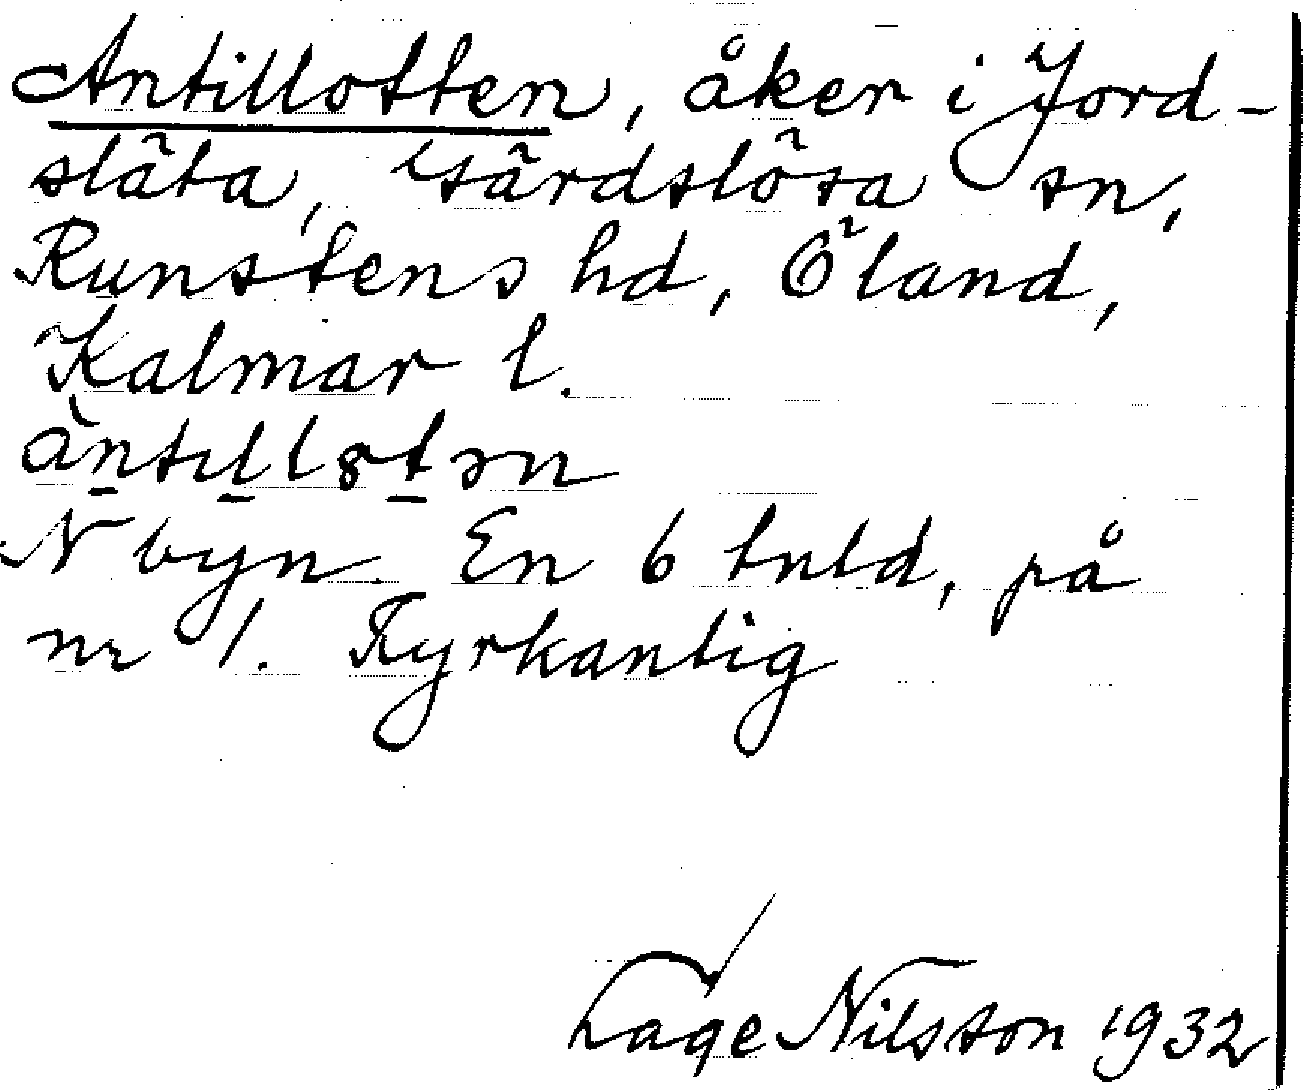 Antillotten, åker i Jord-
släta, Gärdslösa sn,
Runstens hd, Öland,
Kalmar l.
àntıllotən
N byn. En 6 tnld, på
nr 1. Fyrkantig
Lage Nilsson 1932